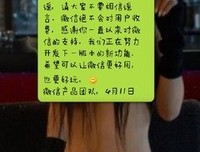 谣，请大家不要相信谣
言，微信绝不会对用户收
费。感谢你一直以来对微
信的支持，我们正在努力
开发下一版本的新功能，
希望可以让微信更好用，
也更好玩。
微信产品团队，4月11日